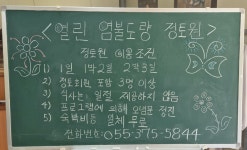 <열린 염불도량 정토원>
정토원 이용조건
1) 1일 1박2일 2박3일
2) 정토회원 포함 3명 이상
3) 식사는 일절 제공하지 않음
4) 프로그램에 의해 염불 정진
5) 숙박비등 일체 무료
전화번호:055-375-5844